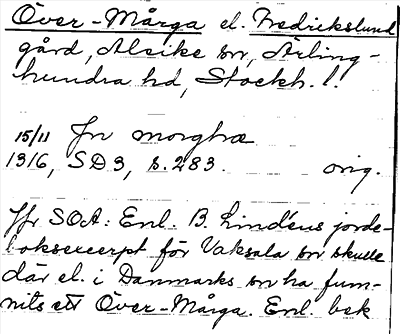 Över-Mårga el. Fredrikslund
gård, Alsike sn, Ärling-
hundra hd, Stockh. l.
15/11 Jn morghæ
1316, SD 3, s. 283. orig.
Jfr SOA: Enl. B. Lindéns jorde-
boksexcerpt för Vaksala sn skulle
där el. i Danmarks sn ha fum-
nits ett Över-Mårga. Enl. bek